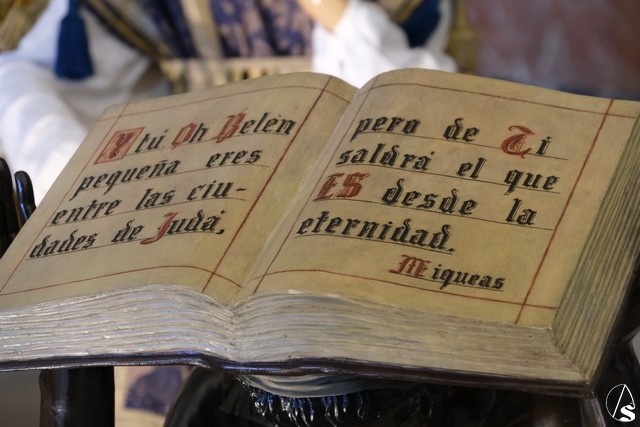 Y tú Oh Belén
pequeña eres
entre las ciu-
dades de Judá,
pero de Ti
saldrá el que
ES desde la
eternidad.
Miqueas